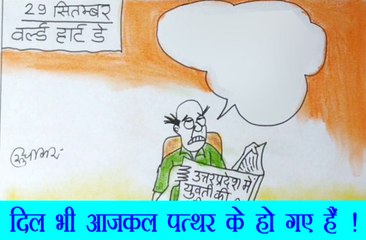 29 सितम्बर
वर्ल्ड हार्ट डे
उत्तर प्रदेश में
युवती की
दिल भी आजकल पत्थर के हो गए हैं !